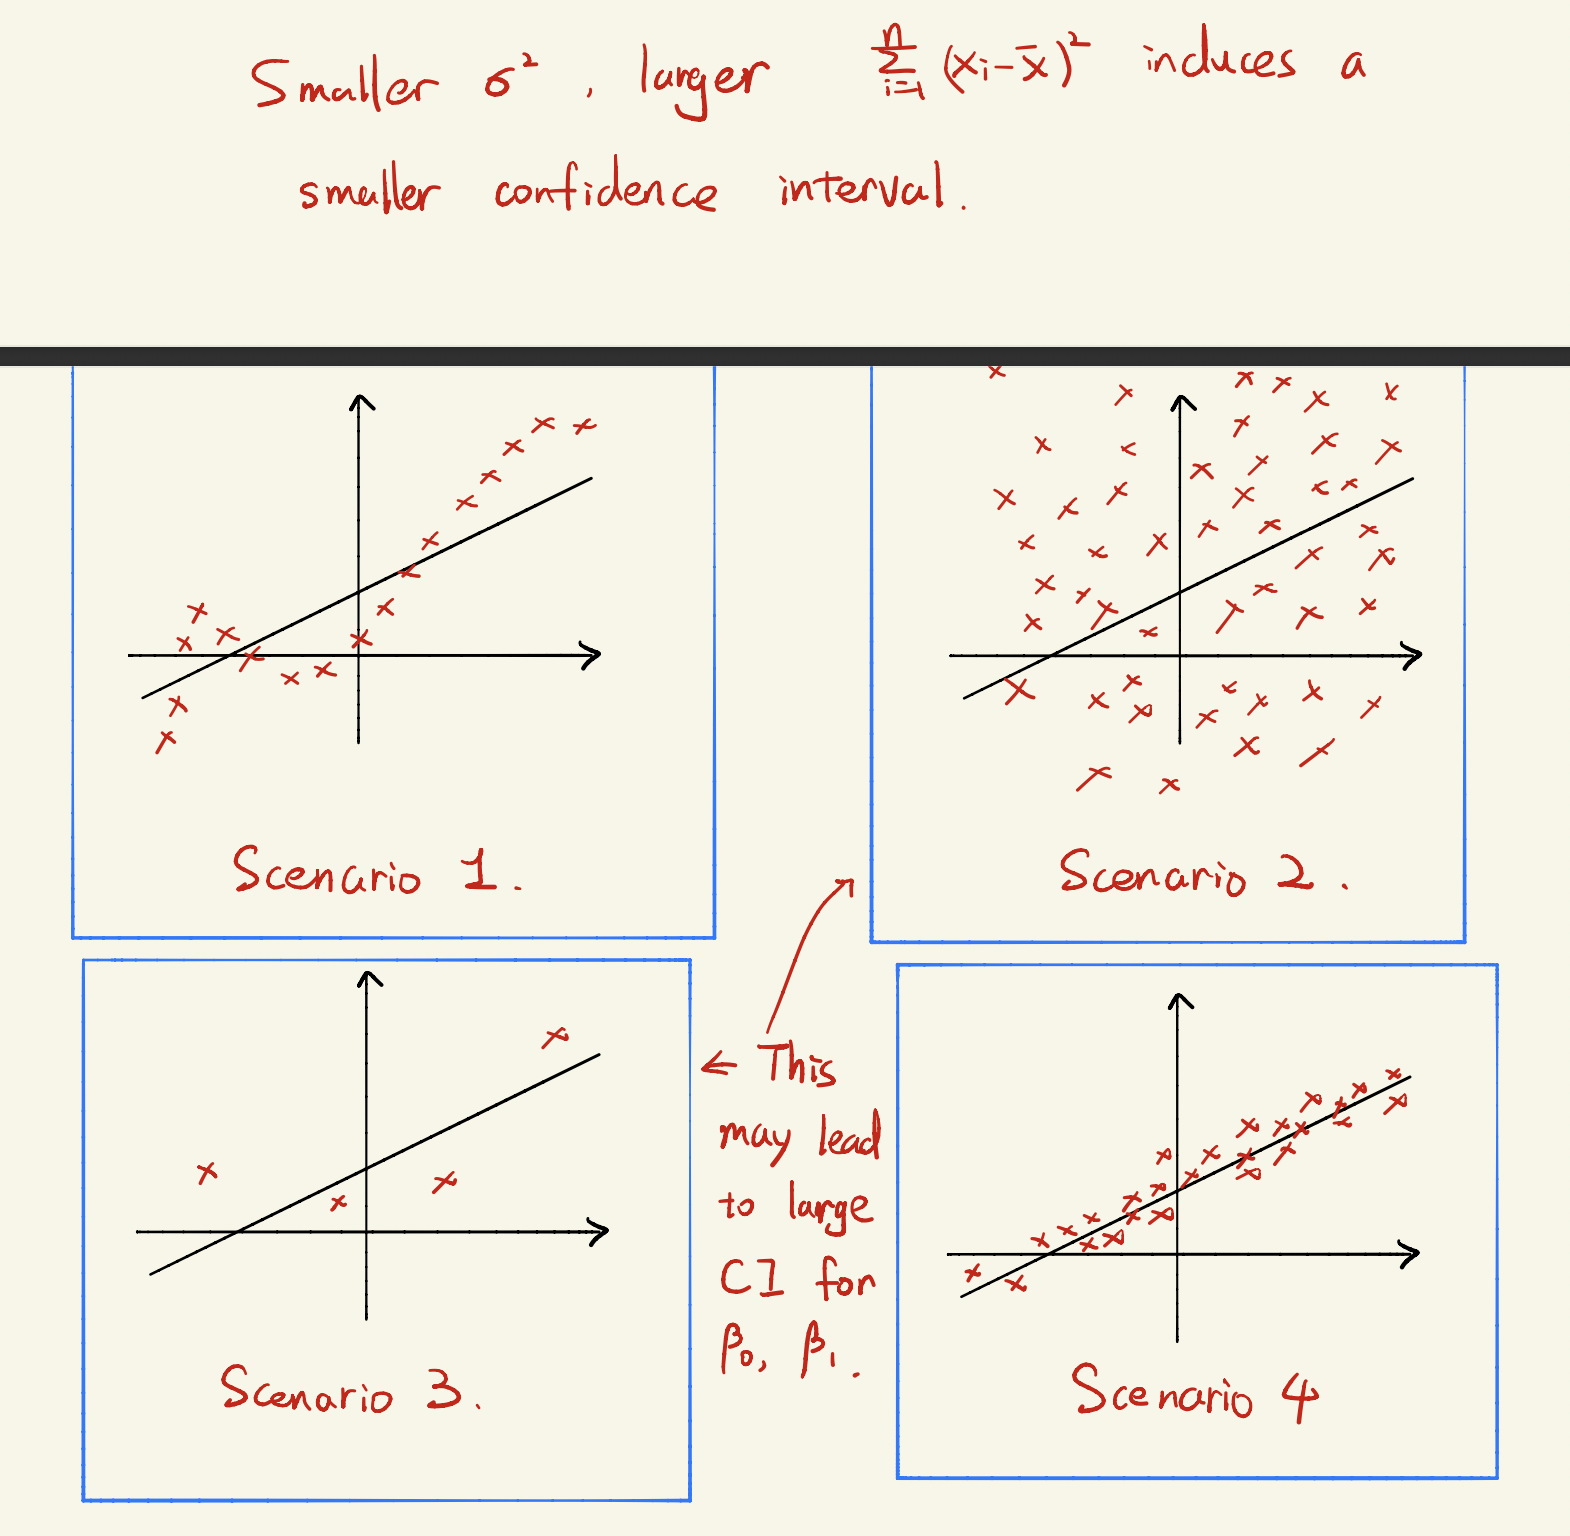 Smaller σ², larger $\sum_{i=1}^{n} (x_i - \bar{x})^2$ induces a
smaller confidence interval.
Scenario 1.
Scenario 2.
This
may lead
to large
CI for
β₀, β₁.
Scenario 3.
Scenario 4